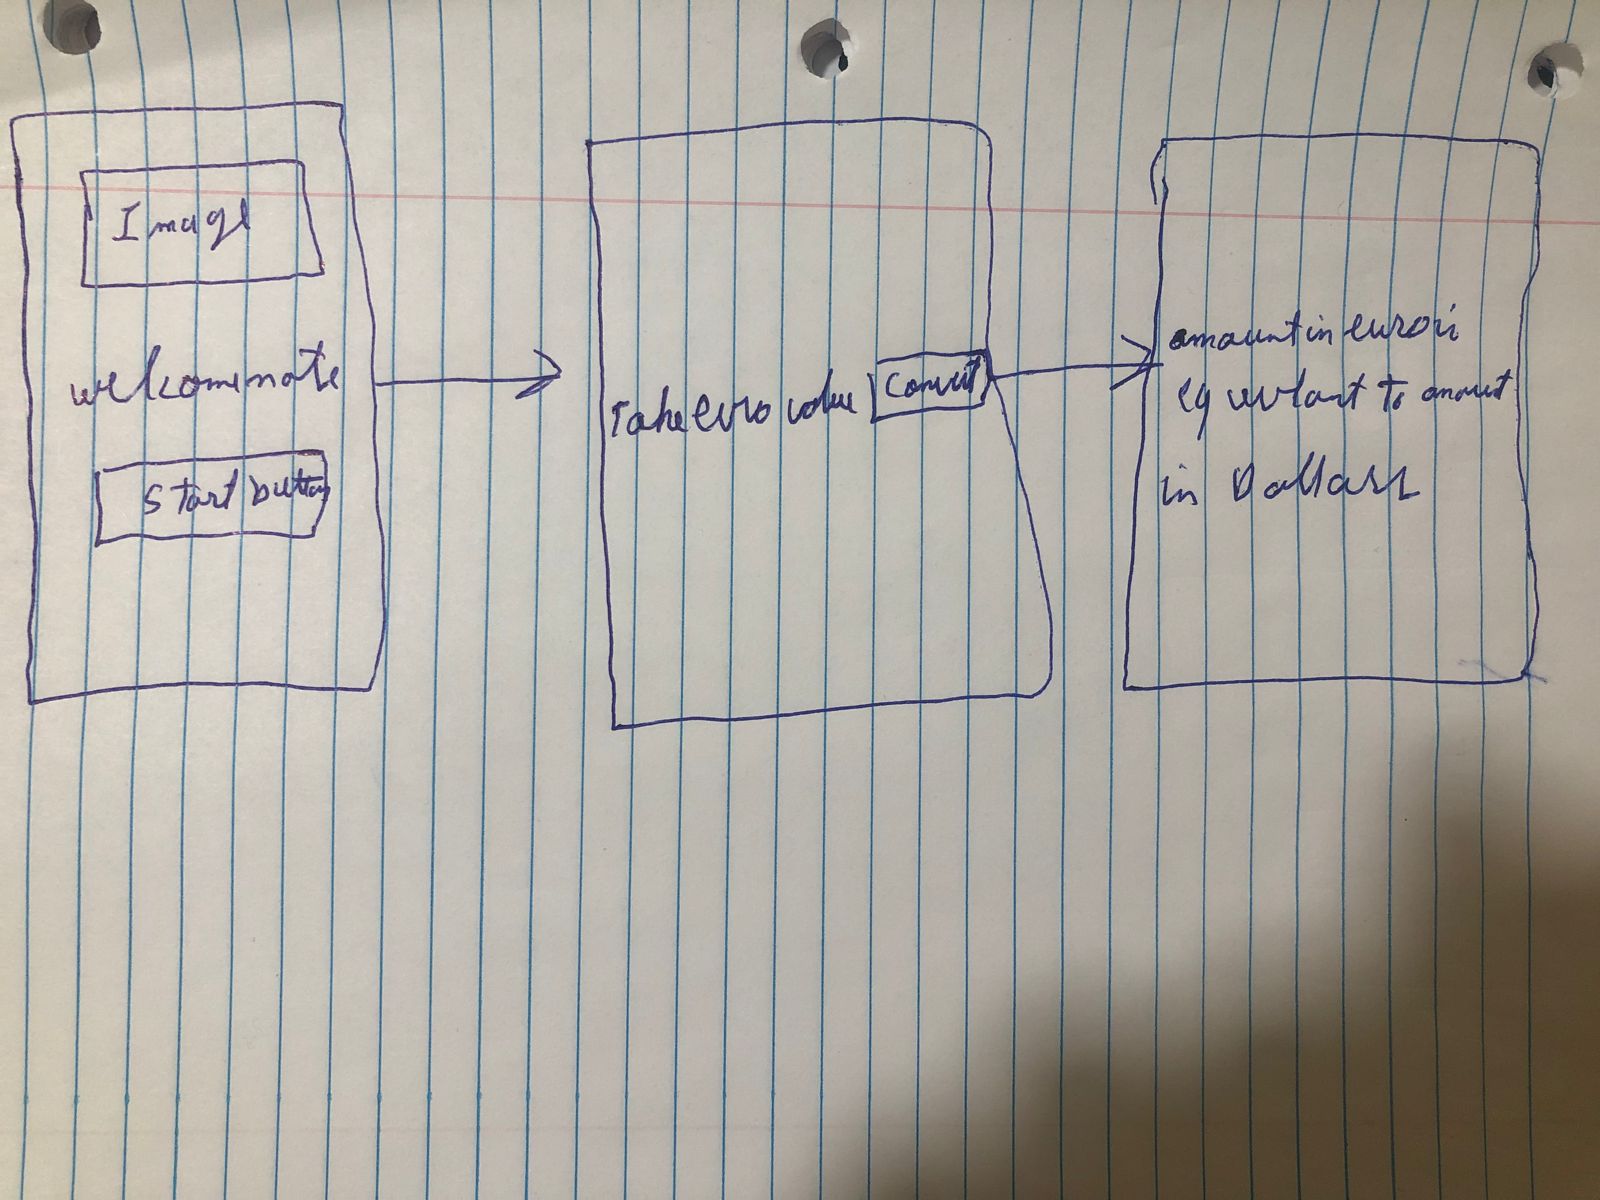 Image
welcome note
Start button
Take euro value
Convert
amount in euro is
equvlant to amount
in Dollars